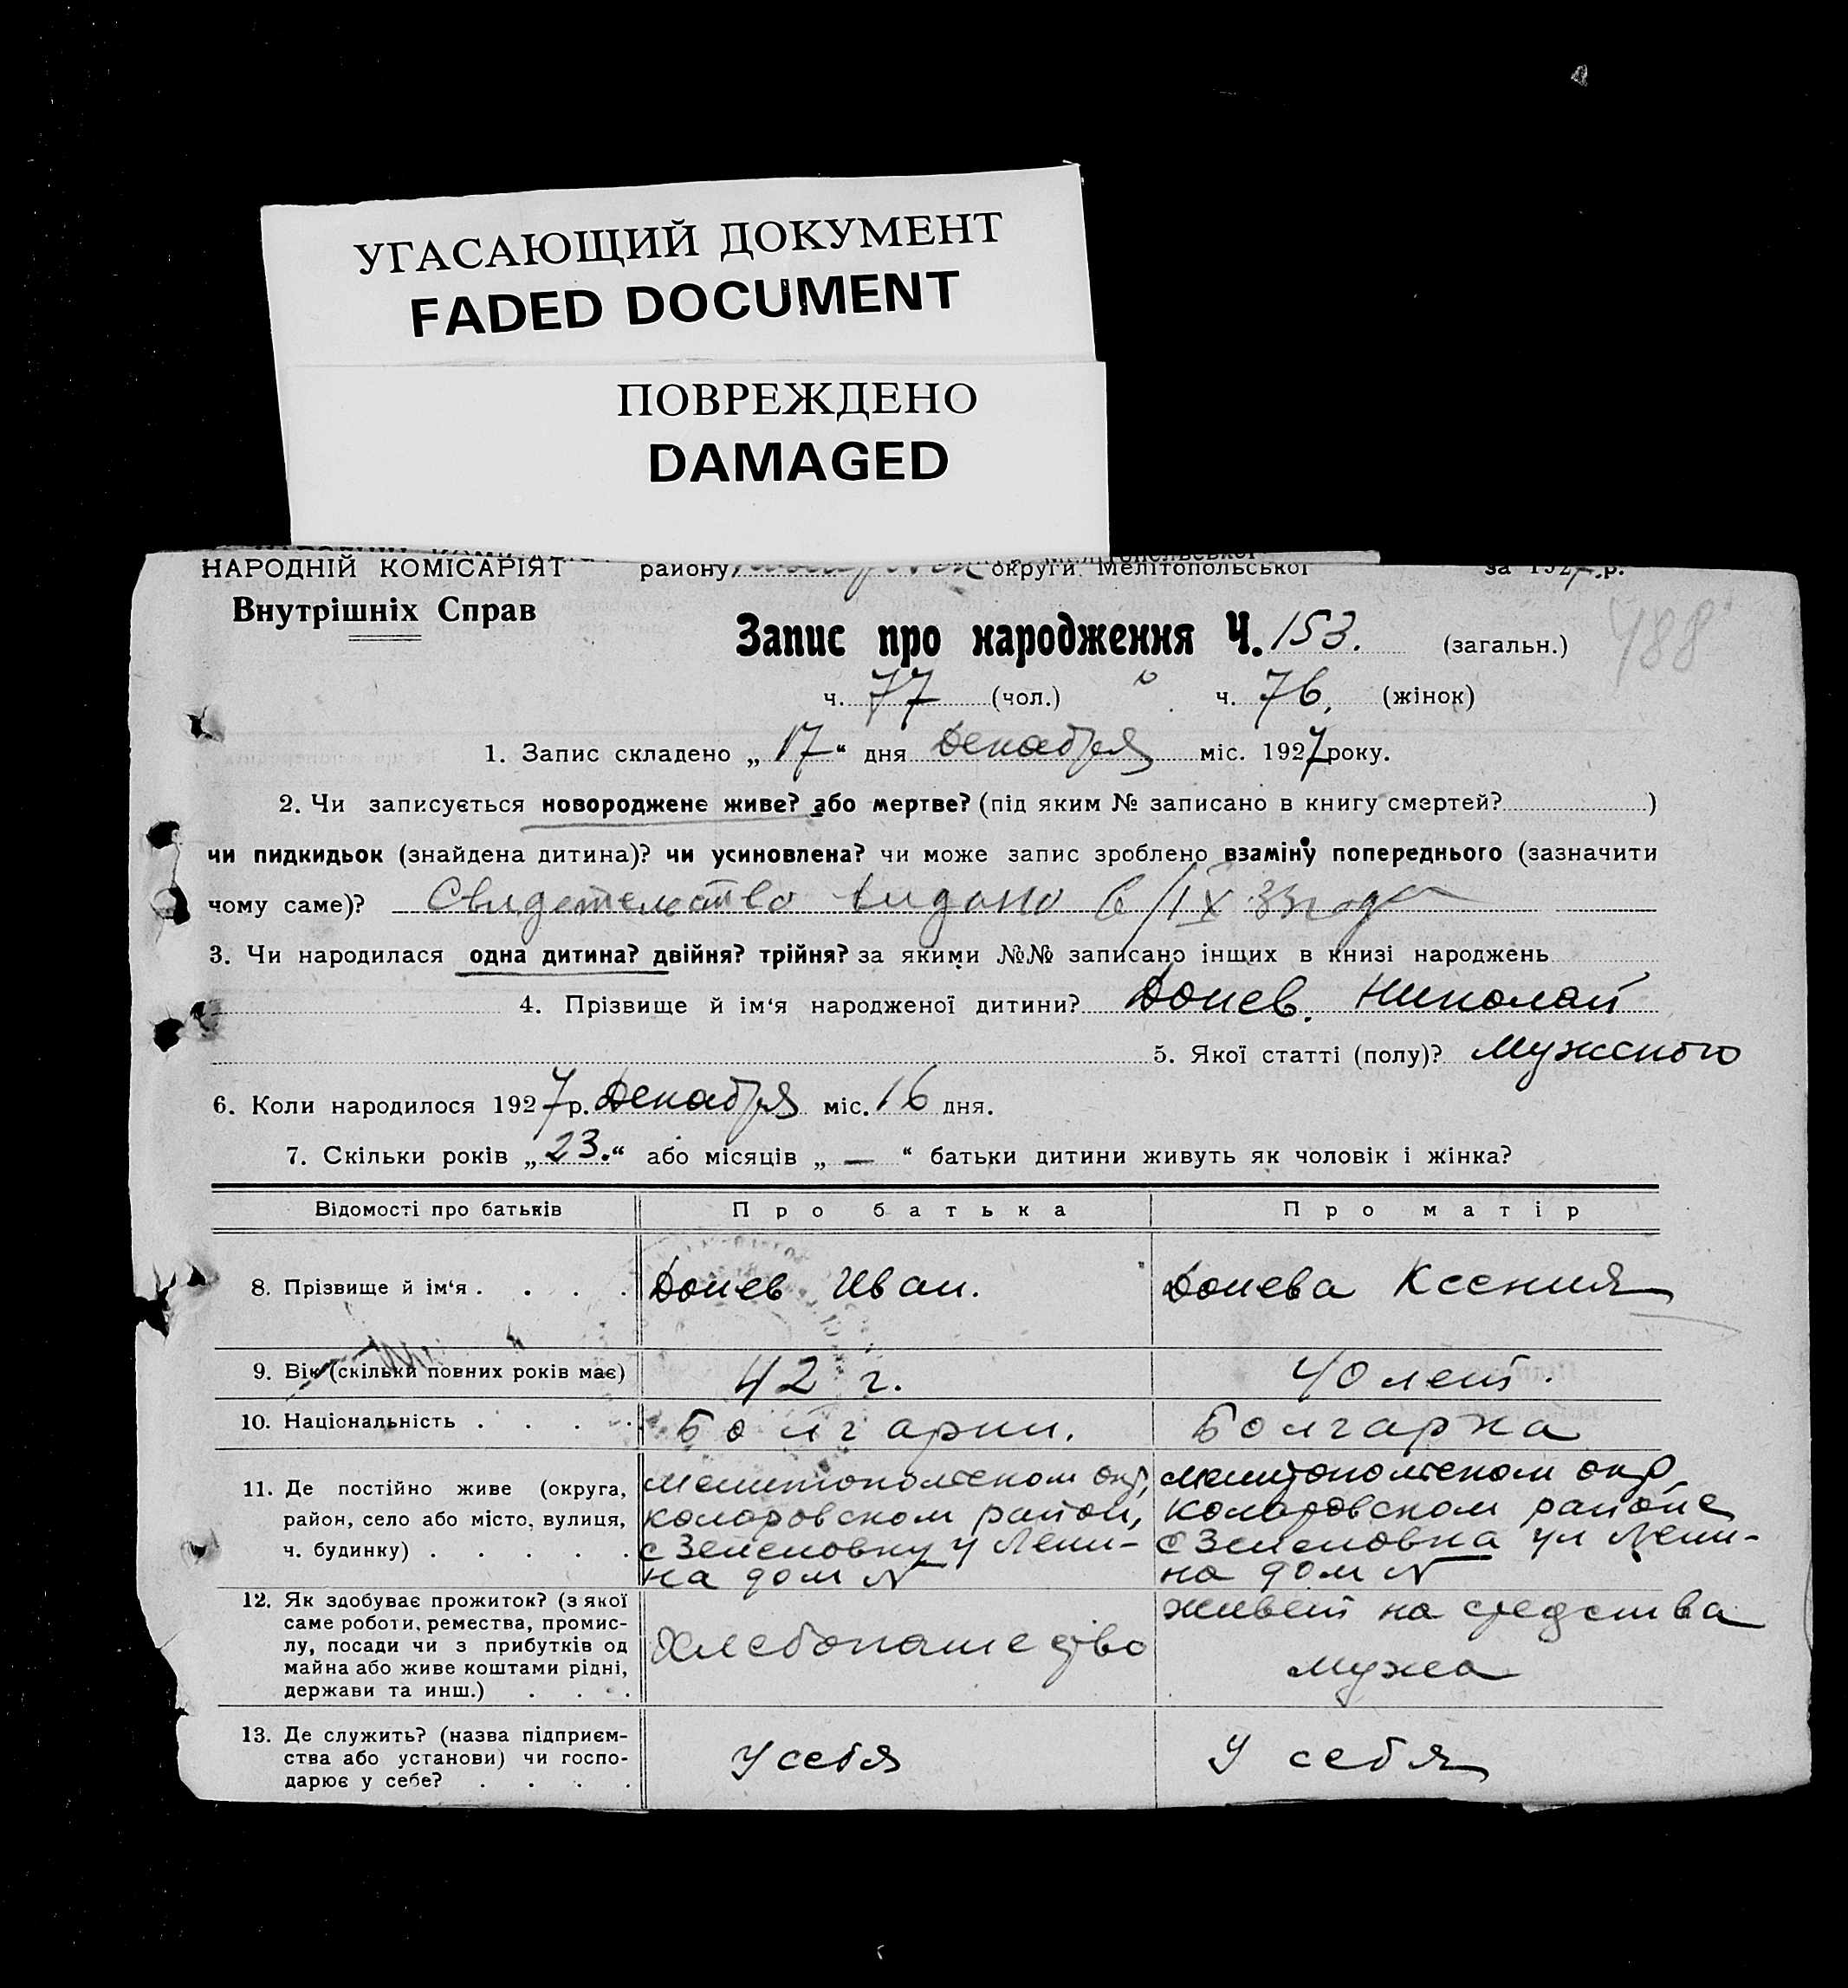 УГАСАЮЩИЙ ДОКУМЕНТ
FADED DOCUMENT
ПОВРЕЖДЕНО
DAMAGED
НАРОДНІЙ КОМІСАРІЯТ району округи Мелітопольської за 1927 р.
Внутрішніх Справ
488
Запис про народження Ч. 153. (загальн.)
ч. 77 (чол.) ч. 76, (жінок)
1. Запис складено „ 17 “ дня Декабря міс. 1927 року.
2. Чи записується новороджене живе? або мертве? (під яким № записано в книгу смертей? )
чи пидкидьок (знайдена дитина)? чи усиновлена? чи може запис зроблено взаміну попереднього (зазначити
чому саме)? Свидетельство видано 6/IX 33 года
3. Чи народилася одна дитина? двійня? трійня? за якими №№ записано інших в книзі народжень
4. Прізвище й ім‘я народженої дитини? Донев. Николай
5. Якої статті (полу)? Мужского
6. Коли народилося 1927 р. Декабря міс. 16 дня.
7. Скільки років „ 23. “ або місяців „ — “ батьки дитини живуть як чоловік і жінка?
Відомості про батьків Про батька Про матір
8. Прізвище й ім‘я . . . . Донев Иван. Донева Ксения
9. Вік (скільки повних років має) 42 г. 40 лет.
10. Національність . . . . Болгарин. Болгарка
11. Де постійно живе (округа, Мелитопольском окр, Мелитопольском окр,
район, село або місто, вулиця, коларовском район, коларовском районе
ч. будинку) . . . . . с Зеленовку у Лени- с Зеленовка ул Лени-
на дом № на дом №
12. Як здобуває прожиток? (з якої живет на средства
саме роботи, ремества, промис-
лу, посади чи з прибутків од Хлебопашество
майна або живе коштами рідні, мужа
держави та инш.) . . .
13. Де служить? (назва підприєм-
ства або установи) чи госпо- У себя У себя
дарює у себе? . . . .